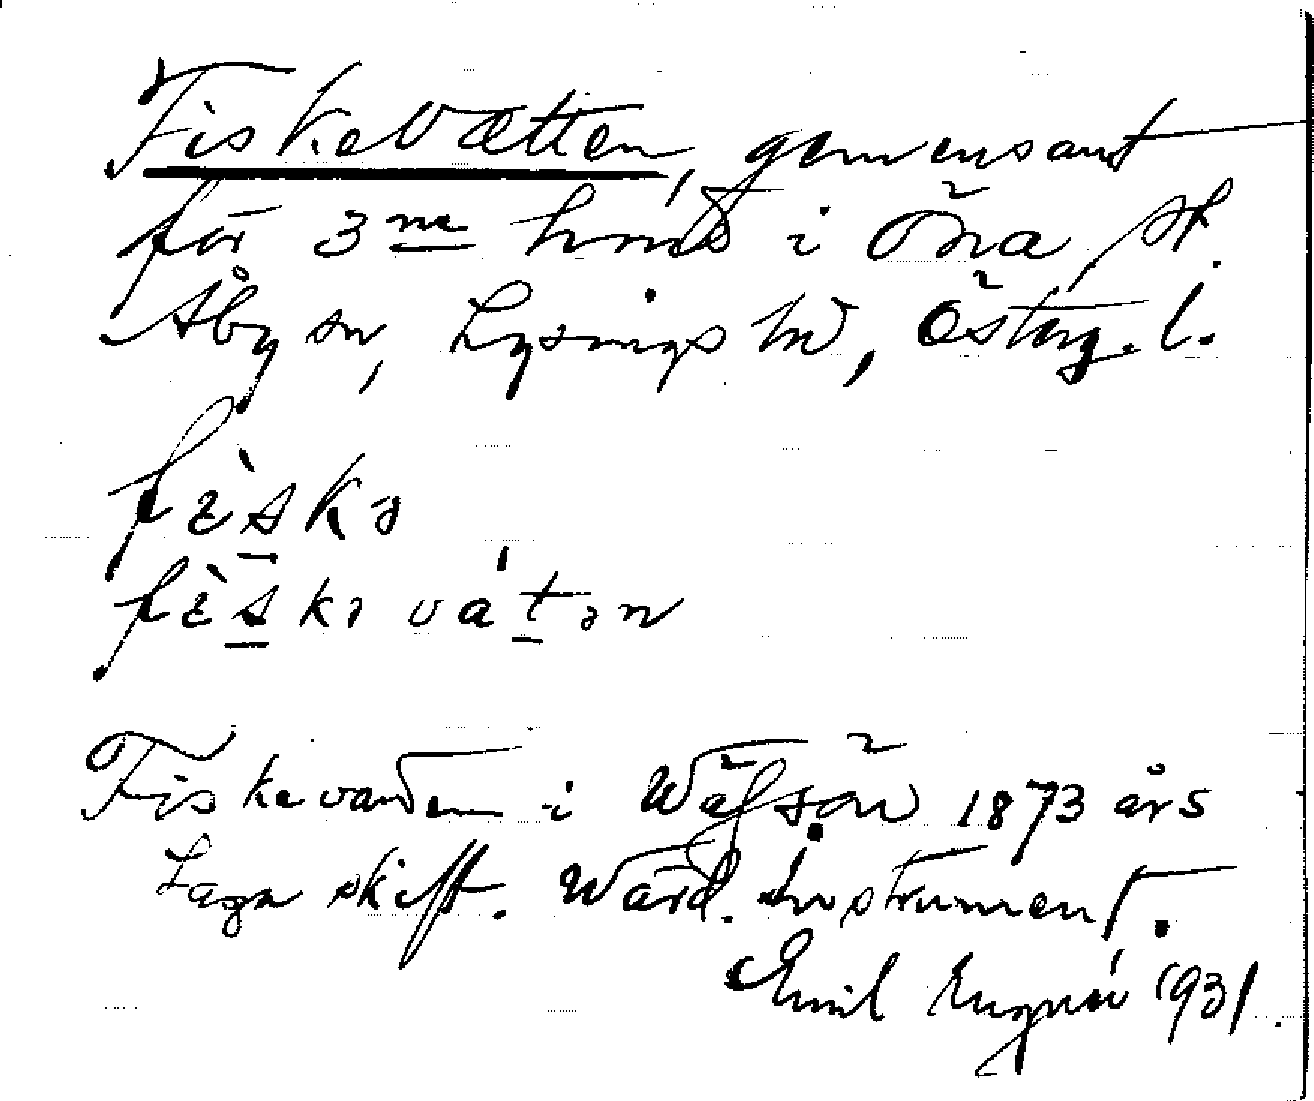 Fiskevätten, gemensamt
för 3 ne hmd i Öna St.
Åby sn, Lysings hd, Österg. l.
fìskə
fìskəvátən
Fiskevarden i 1873 års
Laga skift. Ward. Instrument.
Emil 1931.